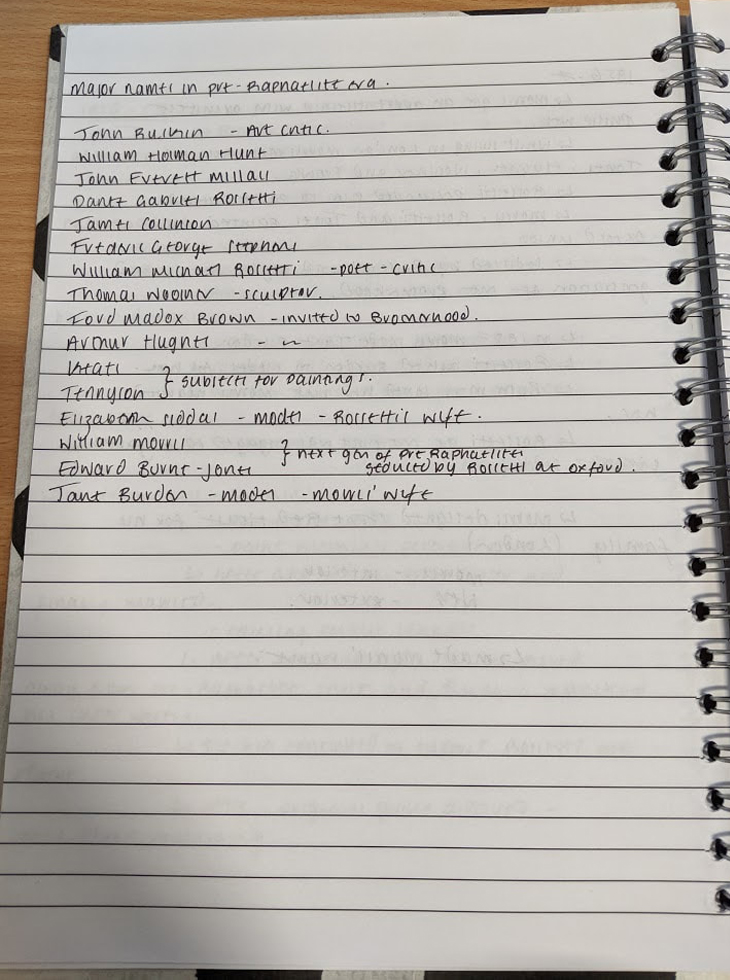 Major names in pre-Raphaelite era.
John Ruskin - Art critic.
William Holman Hunt
John Everett Millais
Dante Gabriel Rossetti
James Collinson
Frederic George Stephens
William Michael Rossetti - poet - critic
Thomas Woolner - sculptor.
Ford Madox Brown - invited to Brotherhood.
Arthur Hughes - "
Keats
Tennyson } subjects for paintings.
Elizabeth Siddal - model - Rossetti's wife.
William Morris
} next gen of Pre Raphaelites
Edward Burne-Jones seduced by Rossetti at oxford.
Jane Burden - model - Morris' wife